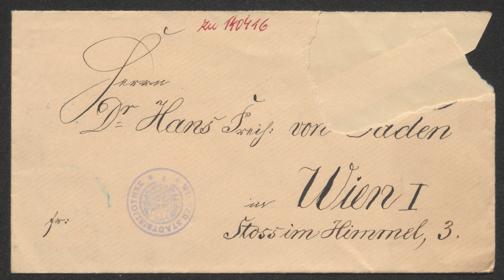 zu 140416
Herrn
Dr Hans Freih: von Baden
in Wien I
Stoss im Himmel, 3.
fr:
STADTBIBLIOTHEK